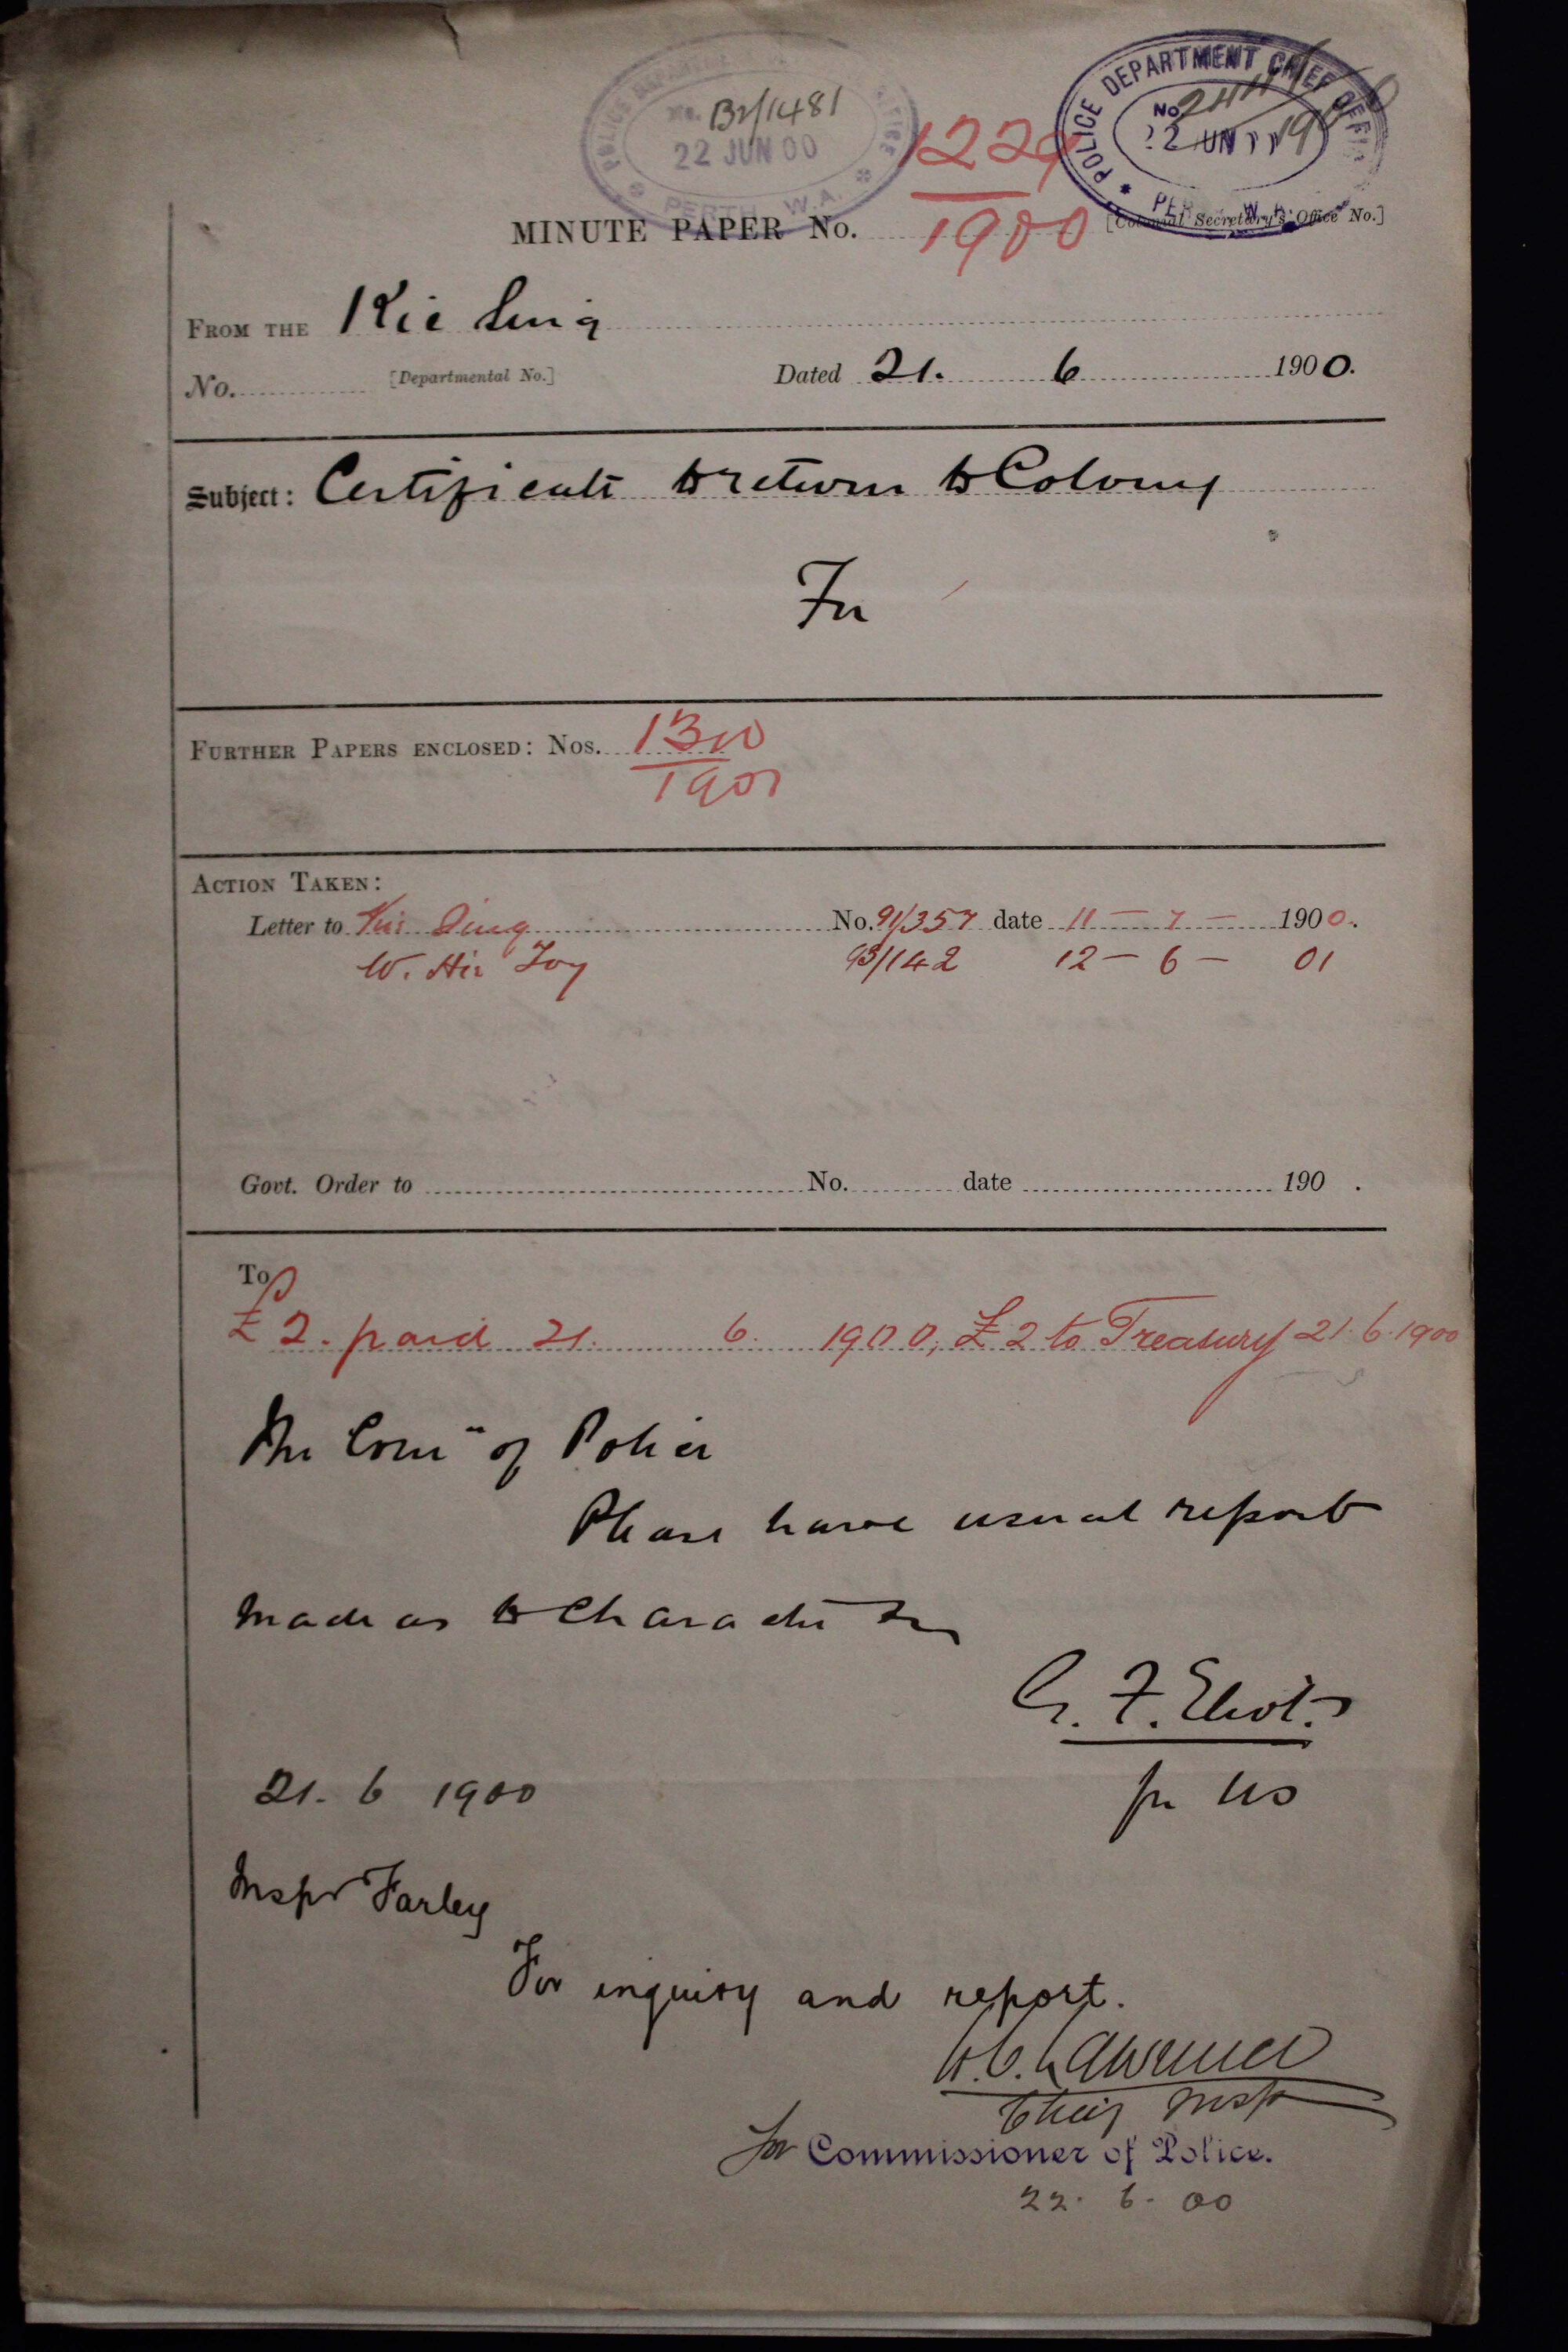 POLICE DEPARTMENT OFFICE
No. B2/1481
22 JUN 00
PERTH W.A.
POLICE DEPARTMENT CHIEF OFFICE
No
22 JUN
1229
1900
MINUTE PAPER No. [Colonial Secretary's Office No.]
FROM THE Kie Sing
No. [Departmental No.] Dated 21. 6 1900.
Subject: Certificate to return to Colony
For
FURTHER PAPERS ENCLOSED: Nos. 1310
1901
ACTION TAKEN:
Letter to Kie Sing No. 91/357 date 11 — 7 — 1900.
W. Hie Foy 93/142 12 — 6 — 01
Govt. Order to No. date 190 .
To
£2. paid 21. 6. 1900, £2 to Treasury 21.6.1900
The Comr of Police
Please have usual report
made as to Character
G. F. Eliot
for US
21. 6 1900
Inspr Farley
For inquiry and report.
W.C. Lawrence
Chief Insp
for Commissioner of Police.
22. 6. 00